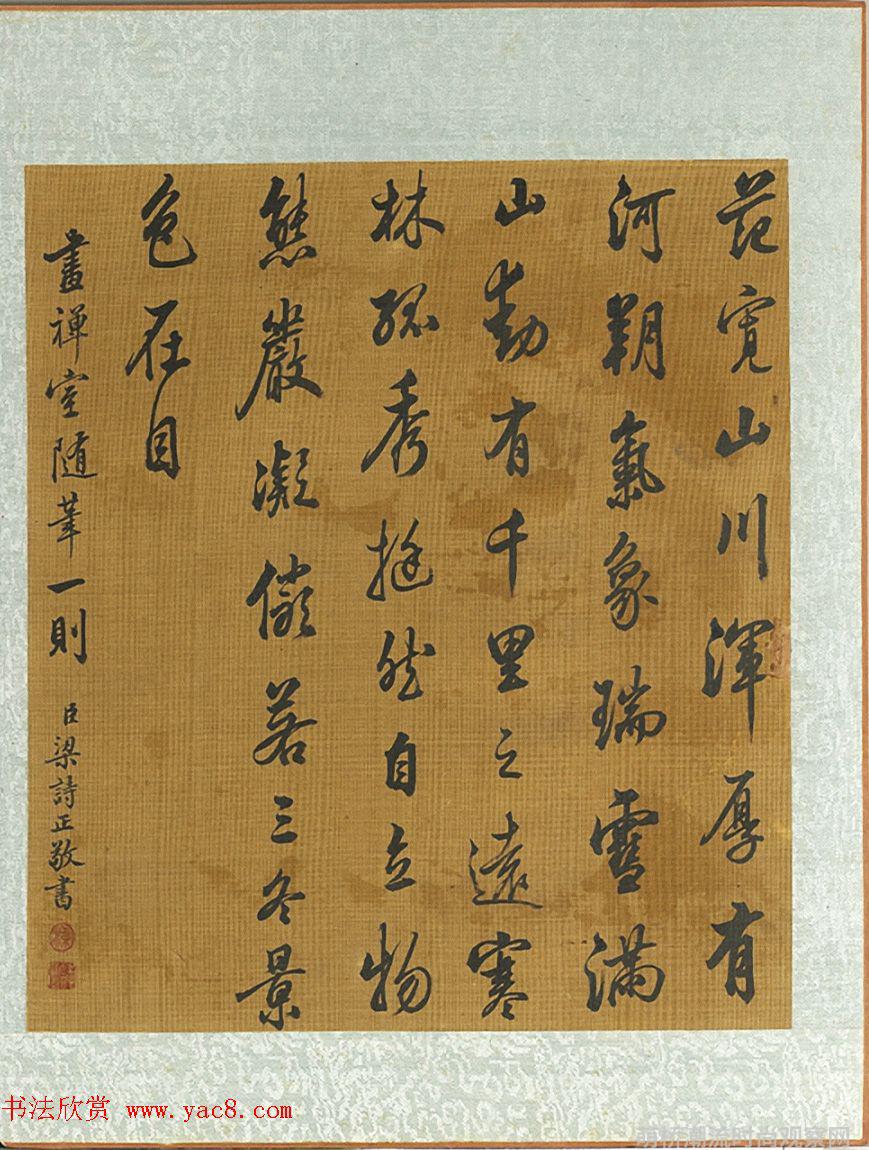 范寬山川渾厚有
河朔氣象瑞雪滿
山動有千里之遠寒
林孤秀挺然自立物
態嚴凝儼若三冬景
色在目
畫禪室随筆一則
臣梁詩正敬書
书法欣赏 www.yac8.com